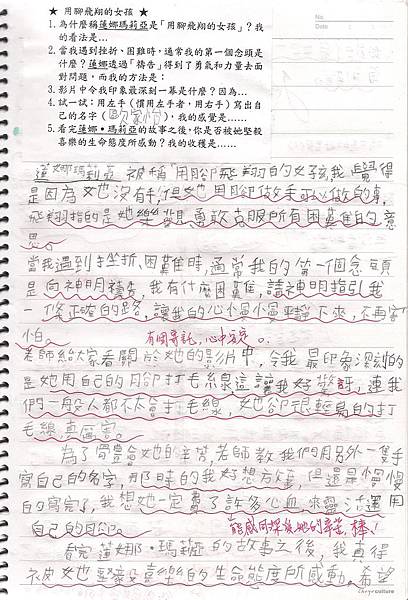 ★ 用腳飛翔的女孩 ★
1. 為什麼稱蓮娜瑪莉亞是「用腳飛翔的女孩」？我
的看法是…
2. 當我遇到挫折、困難時，通常我的第一個念頭是
什麼？蓮娜透過「禱告」得到了勇氣和力量去面
對問題，而我的方法是：
3. 影片中令我印象最深刻一幕是什麼？因為…
4. 試一試：用左手（慣用左手者，用右手）寫出自
己的名字（歐家怡），我的感覺是……
5. 看完蓮娜•瑪莉亞的故事之後，你是否被她堅毅
喜樂的生命態度所感動？我的收穫是……
No.
Date
蓮娜瑪莉亞 被稱「用腳飛翔的女孩,我 覺得
是因為 她沒有手,但她用腳做手可以做的事,
飛翔指的是她樂觀,勇敢克服所有困難的意
思。
當我遇到挫折、困難時,通常我的第一個念頭
是向神明禱告,我有什麼困難,請神明指引我
一條正確的路,讓我的心慢慢平靜下來,不再害
怕。
有個寄託,心中安定。
老師給大家看關於她的影片中,令我 最印象深刻的
是她用自己的腳打毛線這讓我好驚訝,連我
們一般人都不太會打毛線,她卻很輕易的打
毛線,真厲害。
為了體會她的辛苦,老師教我們用另外一隻手
寫自己的名字,那時的我好想放棄,但還是慢慢
的寫完了,我想她一定費了許多心血來靈活運用
自己的腳。
能感同深受她的辛苦,棒!
看完 蓮娜•瑪莉亞的故事之後,我真得
被她堅毅喜樂的生命態度所感動。希望